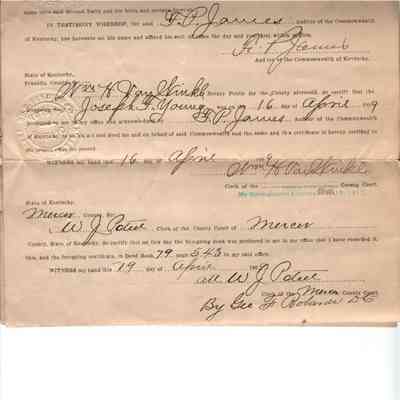 IN TESTIMONY WHEREOF, the said F. P. James Auditor of the Commonwealth
of Kentucky, has hereunto set his name and affixed his seal
F. P. James
Auditor of the Commonwealth of Kentucky.
State of Kentucky,
Franklin County,
Wm H. Van Winkle Notary Public for the County aforesaid, do certify that the
Joseph F. Young on 16 day of April
in my office and acknowledged by F. P. James Auditor of the Commonwealth
of Kentucky, to be his act and deed for and on behalf of said Commonwealth and the same and this certificate is hereby certified to
the proper office for record
WITNESS my hand this 16 day of April
Wm H. Van Winkle
Clerk of the County Court.
State of Kentucky,
Mercer County, Sct.
I, W J Poteet Clerk of the County Court of Mercer
County, State of Kentucky, do certify that on this day the foregoing deed was produced to me in my office that I have recorded it,
this, and the foregoing certificate, in Deed Book 79 page 543 in my said office.
WITNESS my hand this 19 day of April 190
Att W J Poteet
Clerk of the Mercer County Court
By Geo F D C